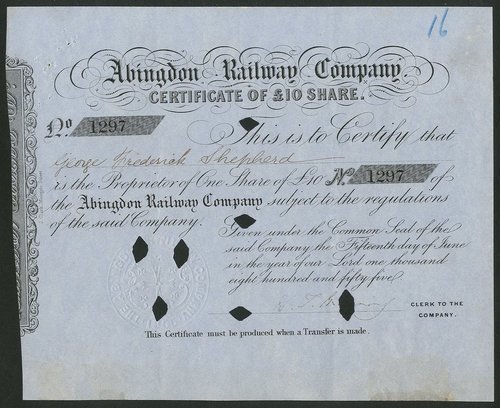 16
Abingdon Railway Company.
CERTIFICATE OF £10 SHARE.
No 1297
This is to Certify that
George Frederick Shepherd
is the Proprietor of One Share of £10 No. 1297 of
the Abingdon Railway Company subject to the regulations
of the said Company.
Given under the Common Seal of the
said Company the Fifteenth day of June
in the year of our Lord one thousand
eight hundred and fifty five
CLERK TO THE
COMPANY.
This Certificate must be produced when a Transfer is made.